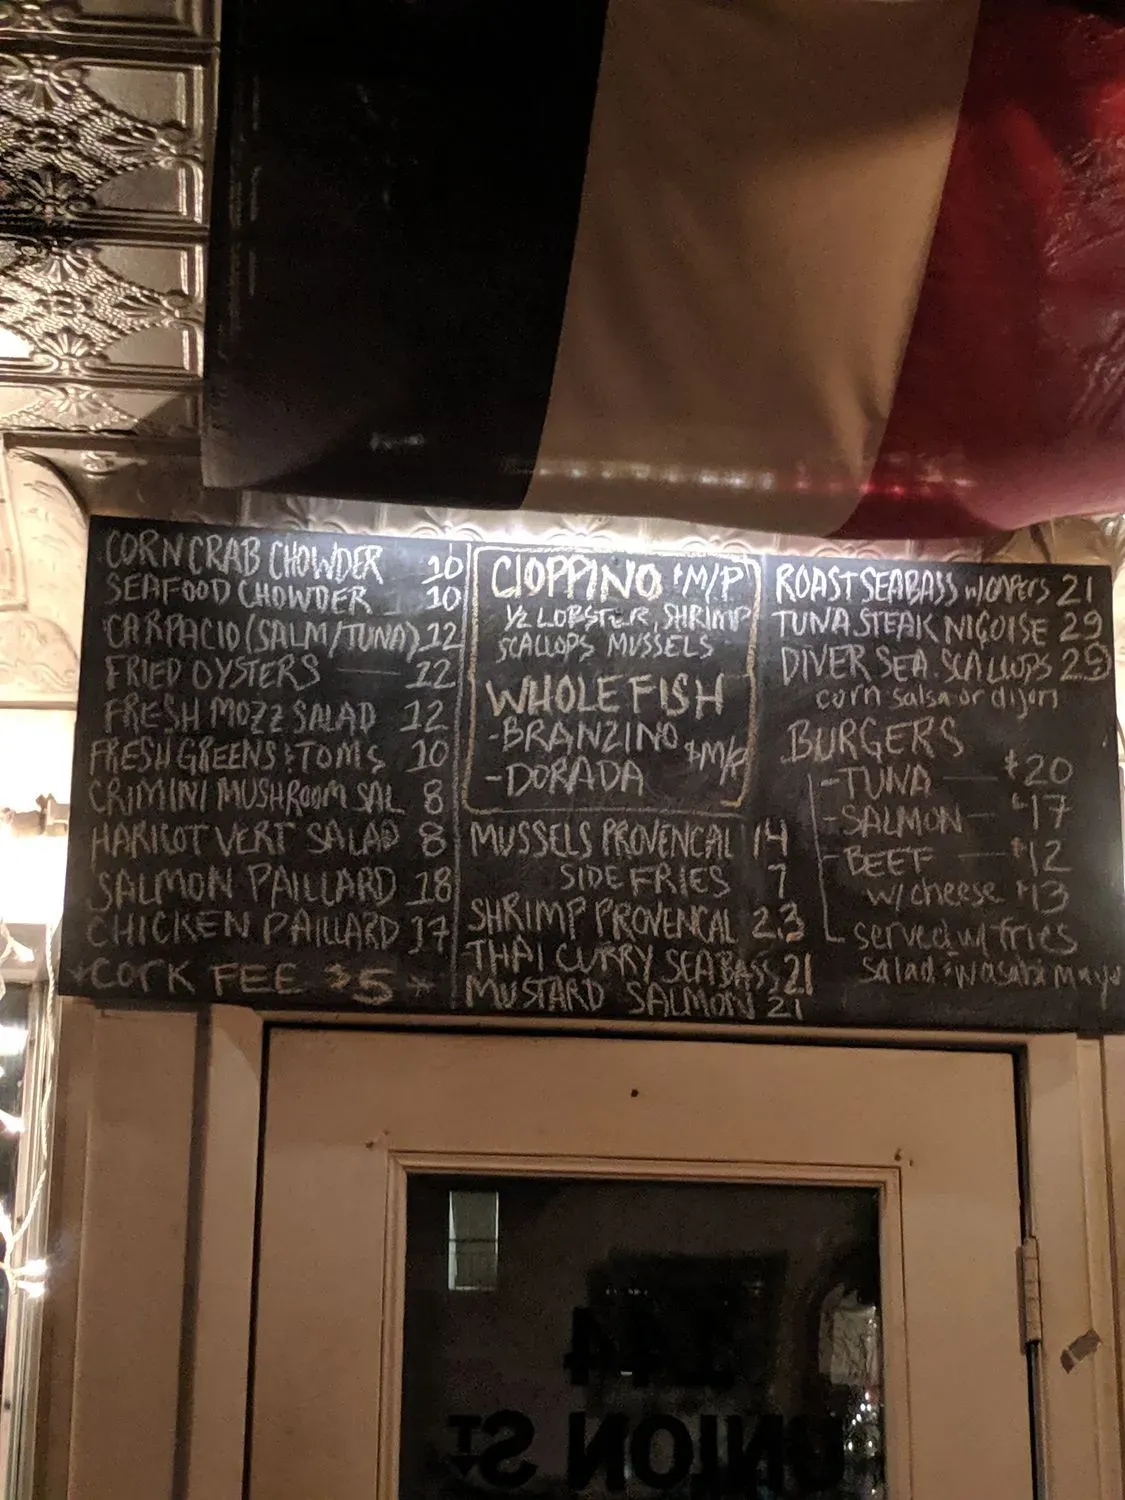 CORN CRAB CHOWDER 10
SEAFOOD CHOWDER 10
CARPACIO (SALM/TUNA) 12
FRIED OYSTERS — 12
FRESH MOZZ SALAD 12
FRESH GREENS & TOMS 10
CRIMINI MUSHROOM SAL 8
HARICOT VERT SALAD 8
SALMON PAILLARD 18
CHICKEN PAILLARD 17
*CORK FEE $5 *
CIOPPINO $M/P
1/2 LOBSTER, SHRIMP
SCALLOPS MUSSELS
WHOLE FISH
-BRANZINO $M/P
-DORADA
MUSSELS PROVENCAL 14
SIDE FRIES 7
SHRIMP PROVENCAL 23
THAI CURRY SEABASS 21
MUSTARD SALMON 21
ROAST SEABASS w/ capers 21
TUNA STEAK NIÇOISE 29
DIVER SEA SCALLOPS 29
corn salsa or dijon
BURGERS
-TUNA — $20
-SALMON — $17
-BEEF — $12
w/ cheese $13
served w/ fries
salad & wasabi mayo
344
UNION ST